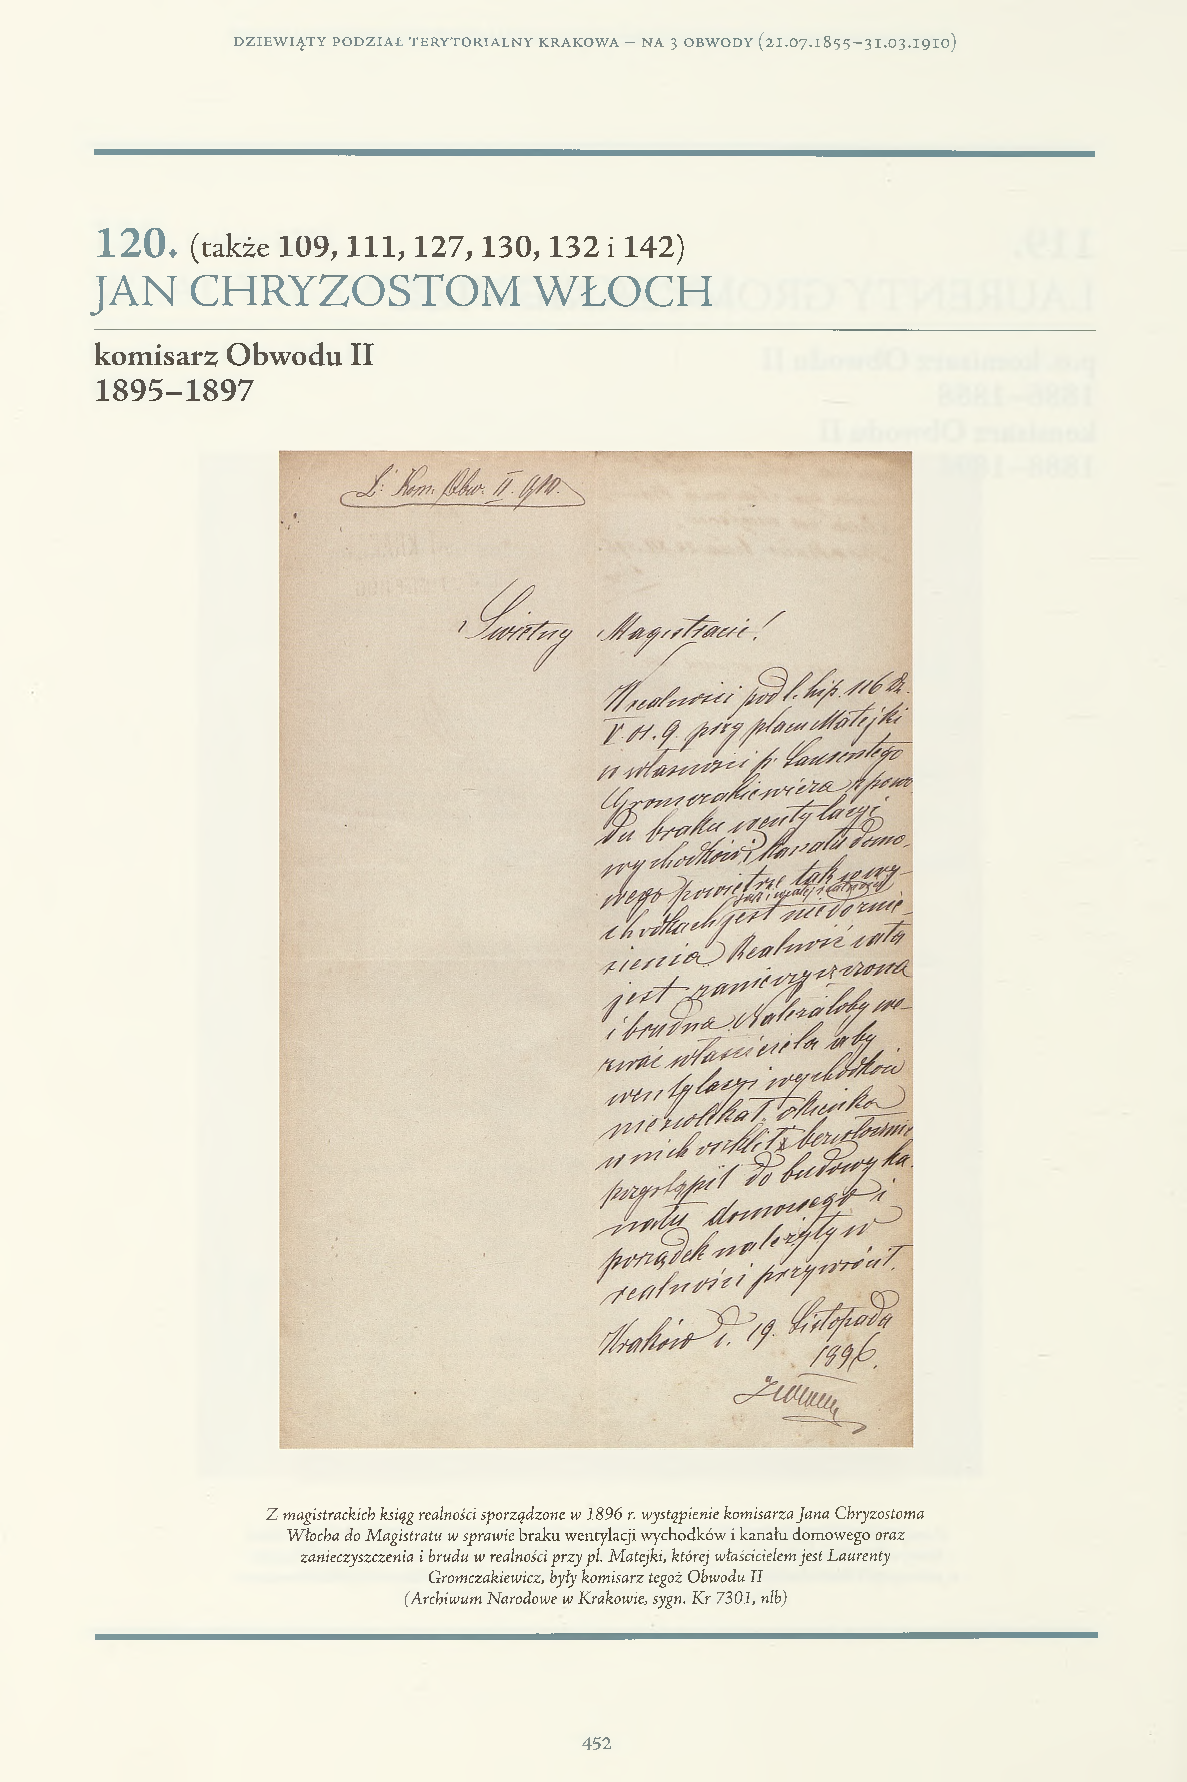 DZIEWIĄTY PODZIAŁ TERYTORIALNY KRAKOWA – NA 3 OBWODY (21.07.1855–31.03.1910)
120. (także 109, 111, 127, 130, 132 i 142)
JAN CHRYZOSTOM WŁOCH
komisarz Obwodu II
1895–1897
L: Kom. Obw. II. 910.
Świetny Magistracie!
W realności pod l. hip. 116 Dz.
V. or. 9. przy placu Matejki
a własności p. Laurentego
Gromczakiewicza z powo
du braku wentylacyi
wychodków i kanału domo-
wego powietrze tak w wy-
chodkach jest niedoznie-
sienia. Realność cała
jest zanieczyszczona
i brudna. Należałoby we-
zwać właściciela aby
wentylacyi wychodków
niezwlekał, okienka
w nich oszklił, bezzwłocznie
przystąpił do budowy ka-
nału domowego i
porządek należyty w
realności przywrócił.
Kraków d. 19. Listopada
1896.
Z magistrackich ksiąg realności sporządzone w 1896 r. wystąpienie komisarza Jana Chryzostoma
Włocha do Magistratu w sprawie braku wentylacji wychodków i kanału domowego oraz
zanieczyszczenia i brudu w realności przy pl. Matejki, której właścicielem jest Laurenty
Gromczakiewicz, były komisarz tegoż Obwodu II
(Archiwum Narodowe w Krakowie, sygn. Kr 7301, nlb)
452